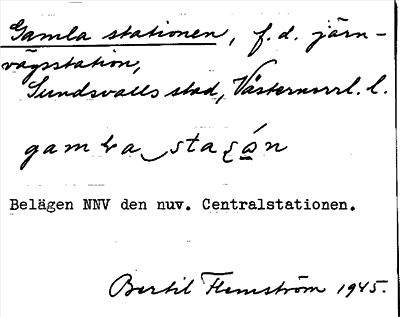 Gamla stationen, f.d. järn-
vägsstation,
Sundsvalls stad, Västernorrl. l.
gamla staʃo̱n
Belägen NNV den nuv. Centralstationen.
Bertil Flemström 1945.